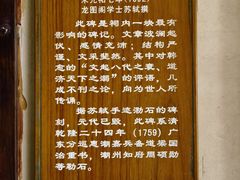 宋元祐七年(1092)
龙图阁学士苏轼撰
此碑是祠内一块最有
影响的碑记。文章波澜起
伏、感情充沛；结构严
谨、文采斐然。其中对韩
愈的“文起八代之衰，道
济天下之溺”的评语，儿
成不刊之论，而为世人所
传诵。
据苏轼手迹勒石的碑
刻，元代已毁，此碑系清
乾隆二十四年(1759)广
东分巡惠潮嘉兵备道梁国
治重书，潮州知府周硕勋
等勒石。